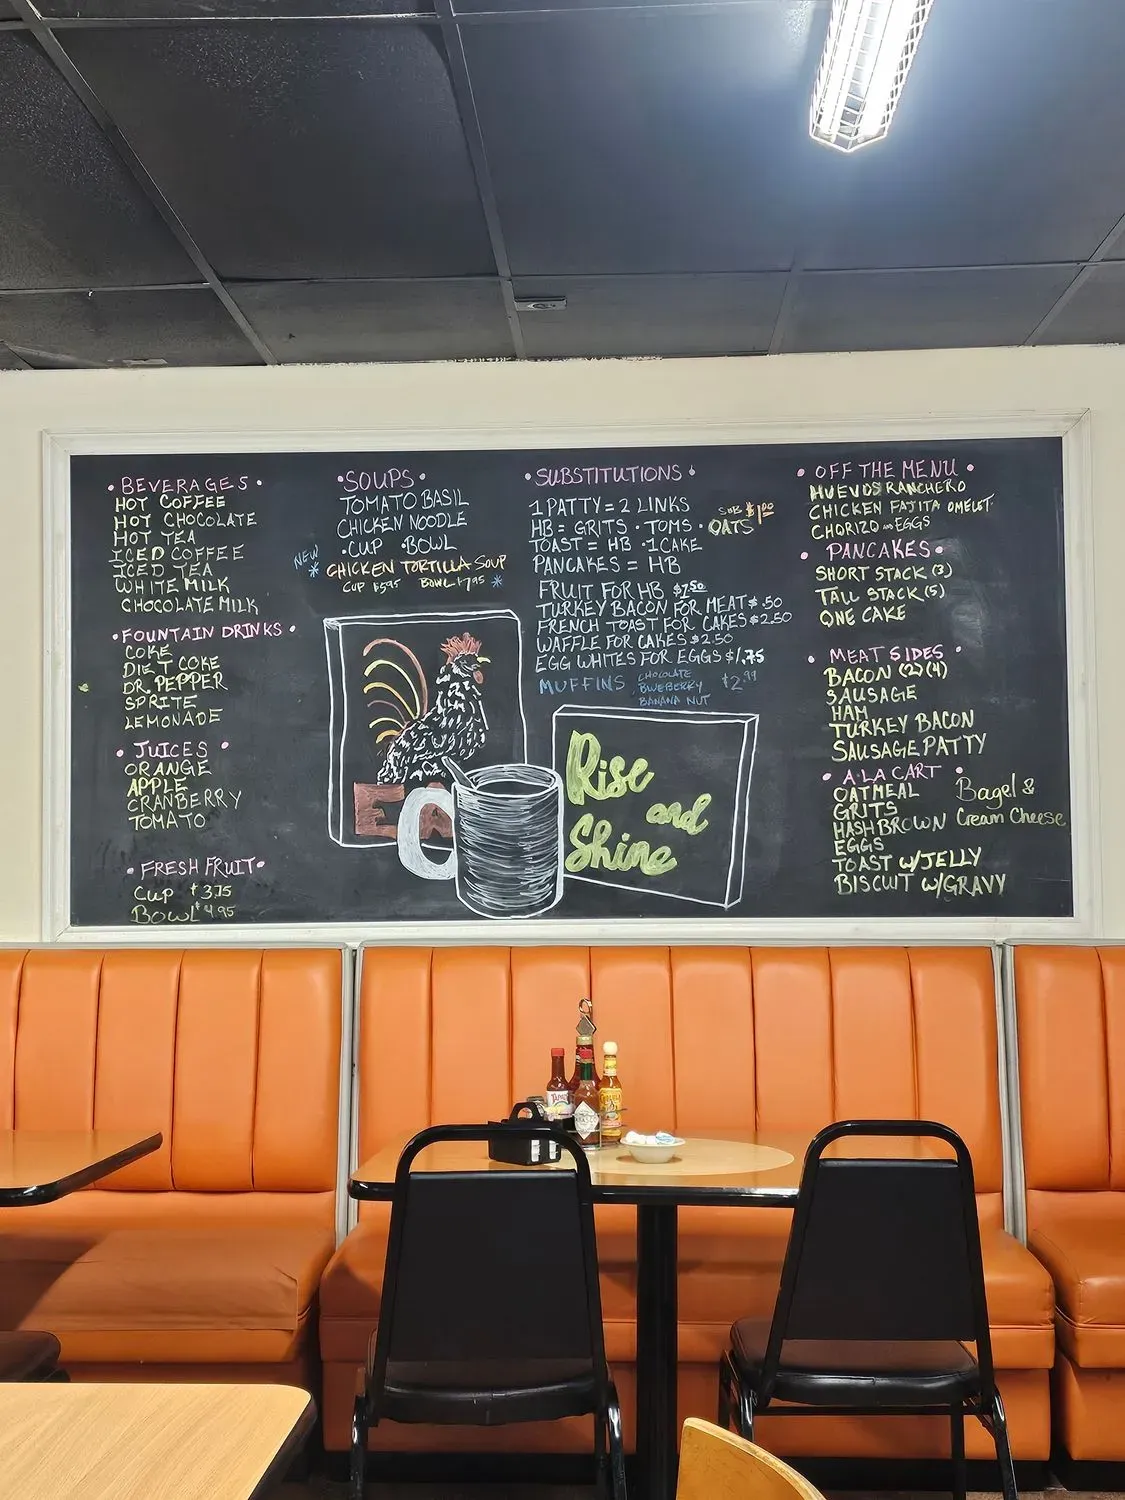 • BEVERAGES •
HOT COFFEE
HOT CHOCOLATE
HOT TEA
ICED COFFEE
ICED TEA
WHITE MILK
CHOCOLATE MILK
• FOUNTAIN DRINKS •
COKE
DIET COKE
DR. PEPPER
SPRITE
LEMONADE
• JUICES •
ORANGE
APPLE
CRANBERRY
TOMATO
• FRESH FRUIT •
CUP $3.75
BOWL $4.95
• SOUPS •
TOMATO BASIL
CHICKEN NOODLE
• CUP • BOWL
NEW
* CHICKEN TORTILLA SOUP
CUP $5.95 BOWL $7.95 *
EA
• SUBSTITUTIONS •
1 PATTY = 2 LINKS
HB = GRITS • TOMS • OATS SUB $1.00
TOAST = HB • 1 CAKE
PANCAKES = HB
FRUIT FOR HB $1.50
TURKEY BACON FOR MEAT $.50
FRENCH TOAST FOR CAKES $2.50
WAFFLE FOR CAKES $2.50
EGG WHITES FOR EGGS $1.75
MUFFINS CHOCOLATE $2.99
BLUEBERRY
BANANA NUT
Rise
and
Shine
• OFF THE MENU •
HUEVOS RANCHERO
CHICKEN FAJITA OMELET
CHORIZO AND EGGS
• PANCAKES •
SHORT STACK (3)
TALL STACK (5)
ONE CAKE
• MEAT SIDES •
BACON (2) (4)
SAUSAGE
HAM
TURKEY BACON
SAUSAGE PATTY
• A LA CART •
OATMEAL
GRITS
HASHBROWN
EGGS
TOAST W/JELLY
BISCUIT W/GRAVY
Bagel &
Cream Cheese